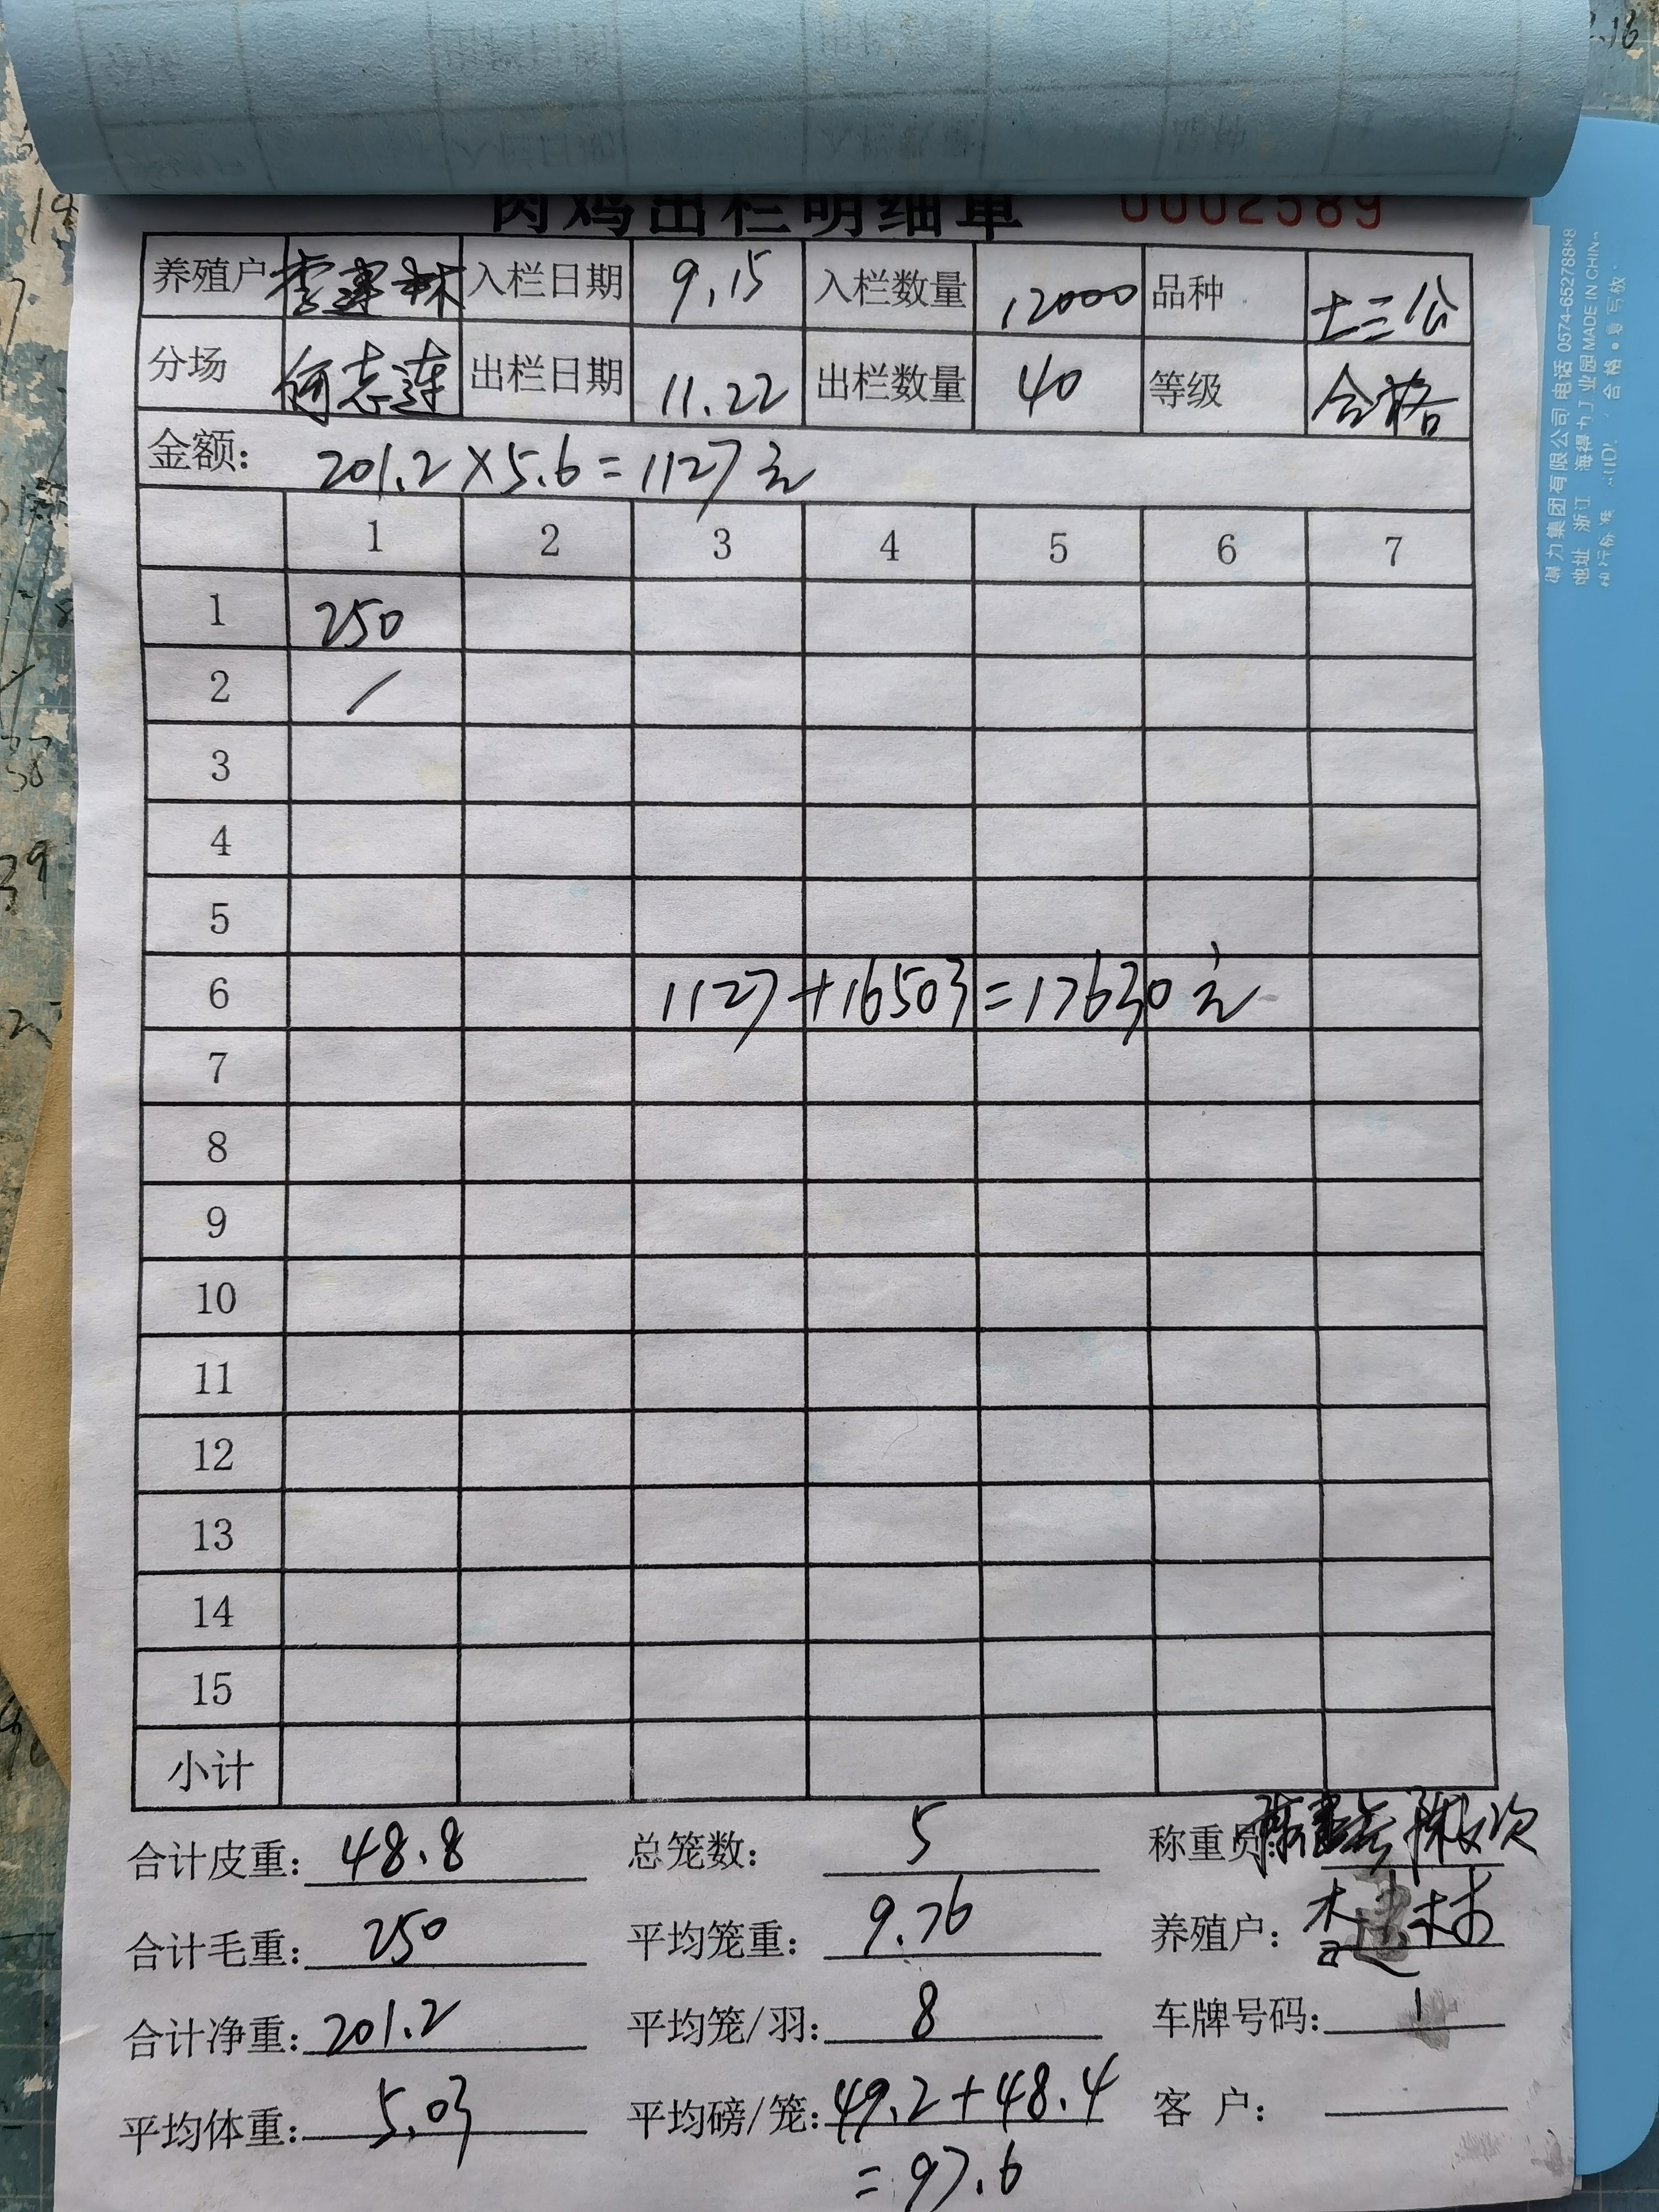 肉鸡出栏明细单 0002589
养殖户 李建林 入栏日期 9.15 入栏数量 12000 品种 土三公
分场 何志连 出栏日期 11.22 出栏数量 40 等级 合格
金额： 201.2×5.6=1127元
1 2 3 4 5 6 7
1 250
2 /
3
4
5
6 1127+16503=17630元
7
8
9
10
11
12
13
14
15
小计
合计皮重： 48.8 总笼数： 5 称重员：
合计毛重： 250 平均笼重： 9.76 养殖户： 李建林
合计净重： 201.2 平均笼/羽： 8 车牌号码： 1
平均体重： 5.03 平均磅/笼： 49.2+48.4 客 户：
=97.6
集团有限公司 电话 0574-65278888
地址 浙江 海得力工业园 MADE IN CHINA